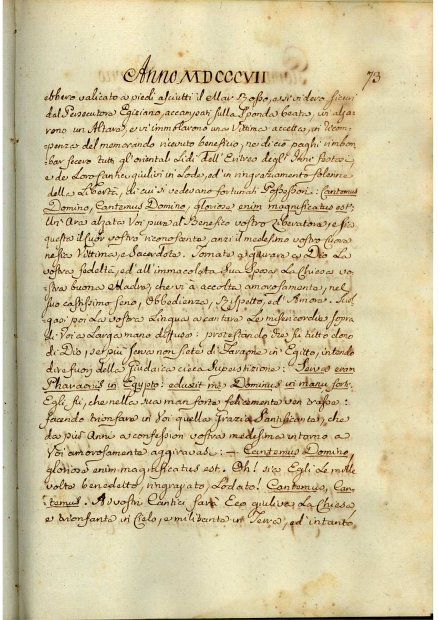 Anno MDCCCVII
73
ebbero valicato à piedi asciutti il Mar Rosso, e si videro sicuri
dal Persecutore Egiziano, accampati sulla sponda beata, vi alza-
rono un Altare, e vi immolarono una Vittima accetta, in ricom-
penza del memorando ricevuto benefizio, ne di ciò paghi rimbom-
bar fecero tutti gl'orientali Lidi dell'Eritreo degl'Inni festosi
e de Loro Cantici giulivi in Lode, ed in ringraziamento solenne
della Libertà, di cui si vedevano fortunati Possessori: Cantemus
Domino, Cantemus Domino, gloriose enim magnificatus est.
Un'Ara alzate Voi pure al Benefico vostro Liberatore, e sia
questa il Cuor vostro riconoscente, anzi il medesimo vostro Cuore
ne sia Vittima, e Sacerdote. Tornate a giurare a Dio La
vostra fedeltà, ed all'immacolata Sua Sposa La Chiesa vo-
stra buona Madre, che vi à accolta amorosamente, nel
suo castissimo seno, Obbedienza, Rispetto, ed Amore. Sciol-
gasi poi La vostra Lingua a cantare Le misericordie sopra
di Voi a Larga mano diffuse: protestando che fù tutto dono
di Dio, se più Serva non siete di Faraone in Egitto, intendo
dire fuori della Giudaica cieca Superstizione: Serva eram
Pharaonis in Egypto: eduxit me Dominus in manu forti.
Egli fù, che nella sua man forte felicemente ven trasse:
facendo trionfare in Voi quella Grazia Santificante, che
da più Anni a confession vostra medesima intorno a
Voi amorosamente aggiravasi: — Cantemus Domino,
gloriose enim magnificatus est. Oh! sia Egli Le mille
volte benedetto, ringrazato, Lodato! Cantemus, Can-
temus: A vostri Cantici farà Eco giuliva La Chiesa,
e trionfante in Cielo, e militante in Terra, ed intanto,